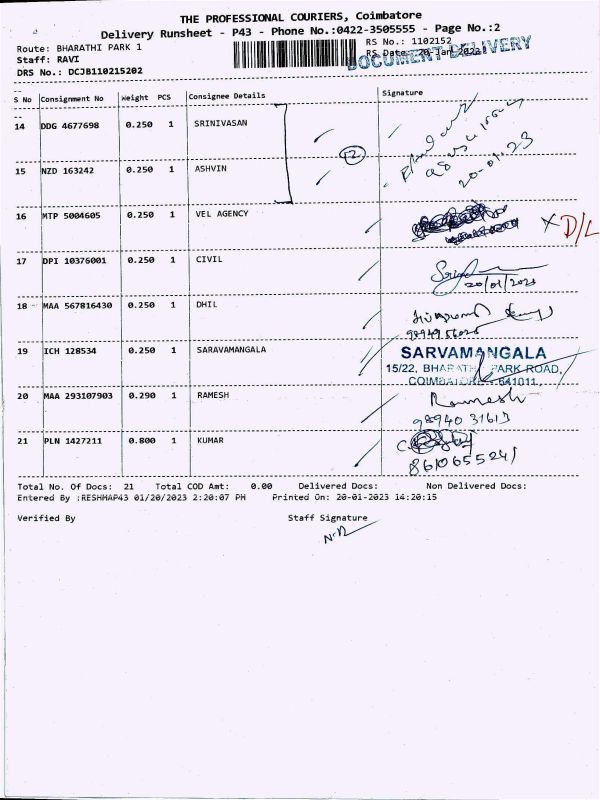 THE PROFESSIONAL COURIERS, Coimbatore
Delivery Runsheet - P43 - Phone No.:0422-3505555 - Page No.:2
Route: BHARATHI PARK 1
RS No.: 1102152
Staff: RAVI
RS Date: 20-Jan-2023
DOCUMENT DELIVERY
DRS No.: DCJB110215202
S No Consignment No Weight PCS Consignee Details Signature
14 DDG 4677698 0.250 1 SRINIVASAN
15 NZD 163242 0.250 1 ASHVIN
20-01-23
16 MTP 5004605 0.250 1 VEL AGENCY X D/L
17 DPI 10376001 0.250 1 CIVIL
20/01/2023
18 MAA 567816430 0.250 1 DHIL
19 ICH 128534 0.250 1 SARAVAMANGALA
SARVAMANGALA
15/22, BHARATHI PARK ROAD,
COIMBATORE - 641011.
20 MAA 293107903 0.290 1 RAMESH Ramesh
98940 31613
21 PLN 1427211 0.800 1 KUMAR
8610655241
Total No. Of Docs: 21 Total COD Amt: 0.00 Delivered Docs: Non Delivered Docs:
Entered By :RESHMAP43 01/20/2023 2:20:07 PM Printed On: 20-01-2023 14:20:15
Verified By Staff Signature